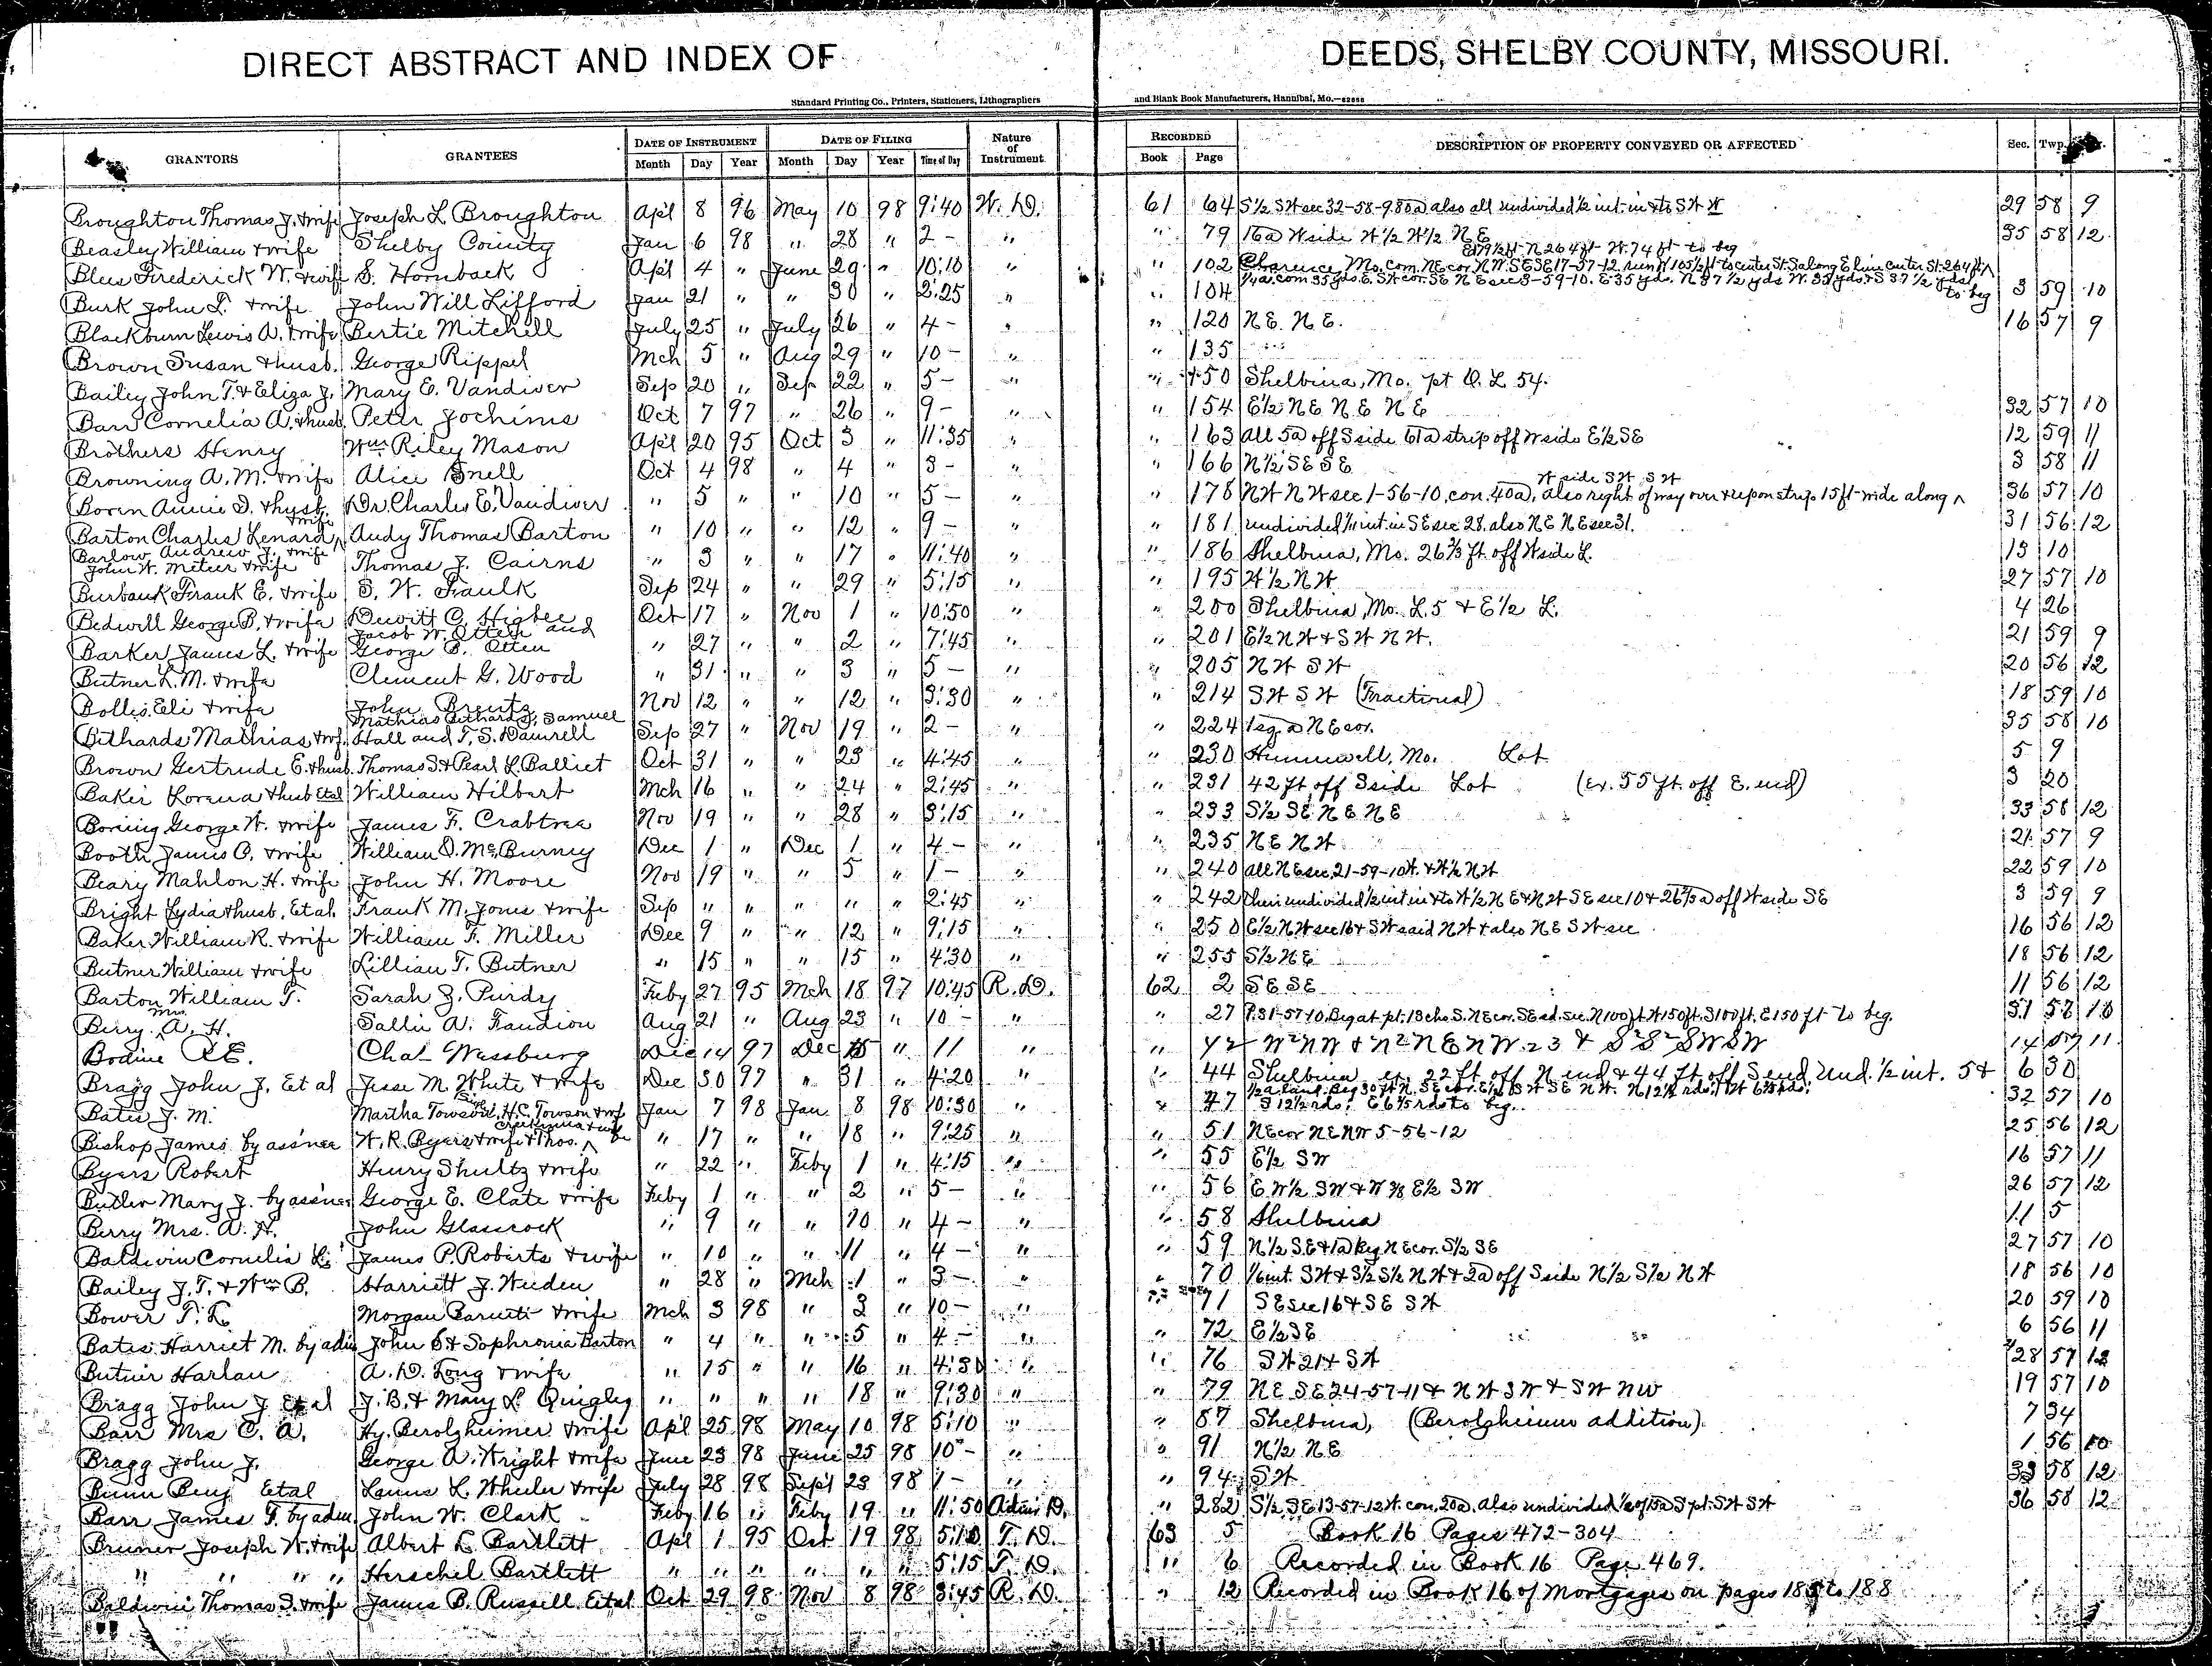 DIRECT ABSTRACT AND INDEX OF DEEDS, SHELBY COUNTY, MISSOURI.
Standard Printing Co., Printers, Stationers, Lithographers and Blank Book Manufacturers, Hannibal, Mo.
GRANTORS GRANTEES DATE OF INSTRUMENT DATE OF FILING Nature of Instrument RECORDED DESCRIPTION OF PROPERTY CONVEYED OR AFFECTED Sec. Twp.
Month Day Year Month Day Year Time of Day Book Page
Broughton Thomas J. & wife Joseph L. Broughton Apl 8 96 May 10 98 9:40 W. D. 61 64 S½ SW sec 32-58-9 80a also all undivided ½ int. in & to SW 29 58 9
Beasley William & wife Shelby County Jan 6 98 " 28 " 2 - " " 79 16a W side W½ W½ NE 35 58 12
E 179½ ft N 264 ft W. 74 ft to beg
Blew Frederick W. & wife S. Hornback Apl 4 " June 29 " 10:10 " " 102 Clarence, Mo. com. NE cor NW SE SE 17-57-12 run W 105½ ft to center St. S along E line center St. 264 ft
Burk John L. & wife John Will Lifford Jan 21 " " 30 " 2:25 " " 104 ¼a. com 35 yds. E. SW cor. SE NE sec 3-59-10. E 35 yds. N 87½ yds W. 35 yds. & S 87½ yds to beg 3 59 10
Blackburn Lewis A. & wife Bertie Mitchell July 25 " July 26 " 4 - " " 120 NE. NE. 16 57 9
Brown Susan & husb. George Rippel Mch 5 " Aug 29 " 10 - " " 135
Bailey John T. & Eliza J. Mary E. Vandiver Sep 20 " Sep 22 " 5 - " " 150 Shelbina, Mo. pt O. L. 54.
Barr Cornelia A. & husb. Peter Jochims Oct 7 97 " 26 " 9 - " " 154 E½ NE NE NE 32 57 10
Brothers Henry Wm Riley Mason Apl 20 95 Oct 3 " 11:35 " " 163 all 5a off S side 61a strip off W side E½ SE 12 59 11
Browning A. M. & wife Alice Snell Oct 4 98 " 4 " 3 - " " 166 N½ SE SE 3 58 11
W side SW SW
Boren Annie D. & husb. Dr. Charles E. Vandiver " 5 " " 10 " 5 - " " 178 NW NW sec 1-56-10, con. 40a, also right of way over & upon strip 15 ft wide along 36 57 10
Barton Charles Lenard & wife Audy Thomas Barton " 10 " " 12 " 9 - " " 181 undivided 1/11 int. in SE sec 28, also NE NE sec 31. 31 56 12
Barlow Andrew J. & wife
John W. Meteer & wife Thomas J. Cairns " 3 " " 17 " 11:40 " " 186 Shelbina, Mo. 26⅔ ft. off W side L. 13 10
Burbank Frank E. & wife S. W. Faulk Sep 24 " " 29 " 5:15 " " 195 W½ NW 27 57 10
Bedwell George B. & wife Dewitt C. Higbee Oct 17 " Nov 1 " 10:50 " " 200 Shelbina, Mo. L. 5 & E½ L. 4 26
Barker James L. & wife Jacob W. Otten and George B. Otten " 27 " " 2 " 7:45 " " 201 E½ NW & SW NW. 21 59 9
Butner L. M. & wife Clement G. Wood " 31 " " 3 " 5 - " " 205 NW SW 20 56 12
Bollis Eli & wife John Brentz Nov 12 " " 12 " 3:30 " " 214 SW SW (Fractional) 18 59 10
Bethards Mathias & wf. Mathias Bethards, Samuel Hall and T. S. Damrell Sep 27 " Nov 19 " 2 - " " 224 1 sq. a NE cor. 35 58 10
Brown Gertrude E. & husb. Thomas S. & Pearl L. Balliet Oct 31 " " 23 " 4:45 " " 230 Hunnewell, Mo. Lot 5 9
Baker Lorena & husb Etal William Hilbert Mch 16 " " 24 " 2:45 " " 231 42 ft off S side Lot (ex. 55 ft. off E. end) 3 20
Boning George W. & wife James F. Crabtree Nov 19 " " 28 " 3:15 " " 233 S½ SE NE NE 33 58 12
Booth James O. & wife William D. McBurney Dec 1 " Dec 1 " 4 - " " 235 NE NW 21 57 9
Beary Mahlon H. & wife John H. Moore Nov 19 " " 5 " 1 - " " 240 all NE sec. 21-59-10 W. & W½ NW 22 59 10
Bright Lydia & husb. Etal. Frank M. Jones & wife Sep " " " " " 2:45 " " 242 their undivided ½ int in & to W½ NE & NW SE sec 10 & 26⅔a off W side SE 3 59 9
Baker William R. & wife William F. Miller Dec 9 " " 12 " 9:15 " " 250 E½ NW sec 16 & SW said NW & also NE SW sec 16 56 12
Butner William & wife Lillian T. Butner " 15 " " 15 " 4:30 " " 255 S½ NE 18 56 12
Barton William T. Sarah J. Purdy Feby 27 95 Mch 18 97 10:45 R. D. 62 2 SE SE 11 56 12
Berry Mrs. A. H. Sallie A. Fandion Aug 21 " Aug 23 " 10 - " " 27 P. 31-57-10. Beg at pt. 18 chs. S. NE cor. SE sd. sec. N 100 ft. W 150 ft. S 100 ft. E 150 ft to beg. 31 57 10
Bodine R E. Chas Wassburg Dec 14 97 Dec 15 " 11 " " 42 W² NW & N² NE NW. 23 & S² S² SW SW 14 57 11
Bragg John J. Et al Jesse M. White & wife Dec 30 97 " 31 " 4:20 " " 44 Shelbina ex. 22 ft off N end & 44 ft off S end Und. ½ int. 5 & 6 30
Bates J. M. Martha Towson, H. C. Towson & wf Jan 7 98 Jan 8 98 10:30 " " 47 ½a. land. Beg 30 ft N. SE cor. E½ SW SE NW. N 12½ rds; W 6⅔ rds; S 12½ rds; E 6⅔ rds to beg. 32 57 10
Bishop James by assnee W. R. Byers & wife & Thos. " 17 " " 18 " 9:25 " " 51 NE cor NE NW 5-56-12 25 56 12
Byers Robert Henry Shultz & wife " 22 " Feby 1 " 4:15 " " 55 E½ SW 16 57 11
Butler Mary J. by assnee George E. Clate & wife Feby 1 " " 2 " 5 - " " 56 E W½ SW & W ⅜ E½ SW 26 57 12
Berry Mrs. A. H. John Glascock " 9 " " 10 " 4 - " " 58 Shelbina 11 5
Baldwin Cornelia L. James P. Roberts & wife " 10 " " 11 " 4 - " " 59 N½ SE & 1a Beg NE cor. S½ SE 27 57 10
Bailey J. T. & Wm B. Harriett J. Weeden " 28 " Mch 1 " 3 - " " 70 1/6 int. SW & S½ S½ NW & 2a off S side N½ S½ NW 18 56 10
Bower T. L. Morgan Barnett & wife Mch 3 98 " 3 " 10 - " " 71 SE sec 16 & SE SW 20 59 10
Bates Harriet M. by adm John S. & Sophronia Barton " 4 " " 5 " 4 - " " 72 E½ SE 6 56 11
Butner Harlan A. D. Long & wife " 15 " " 16 " 4:30 " " 76 SW 21 & SW 28 57 12
Bragg John J Et al J. B. & Mary L. Quigley " " " " 18 " 9:30 " " 79 NE SE 24-57-11 & NW SW & SW NW 19 57 10
Barr Mrs C. A. Hy. Berolzheimer & wife Apl 25 98 May 10 98 5:10 " " 87 Shelbina, (Berolzheimer addition). 7 34
Bragg John J. George A. Wright & wife June 23 98 June 25 98 10 - " " 91 N½ NE 1 56 10
Bunn Benj Etal Lanus L. Wheeler & wife July 28 98 Sept 23 98 1 - " " 94 SW 33 58 12
Barr James T. by adm. John W. Clark Feby 16 " Feby 19 " 11:50 Adm. D. " 282 S½ SE 13-57-12 W. con. 20a. also undivided ½ of 15a S pt. SW SW 36 58 12
Bruner Joseph W. & wife Albert L. Bartlett Apl 1 95 Oct 19 98 5:10 T. D. 63 5 Book 16 Pages 472-304
" " " " Herschel Bartlett " " " " " " 5:15 T. D. " 6 Recorded in Book 16 Page 469.
Baldwin Thomas S. & wife James B. Russell Etal Oct 29 98 Nov 8 98 3:45 R. D. " 12 Recorded in Book 16 of Mortgages on pages 185 to 188